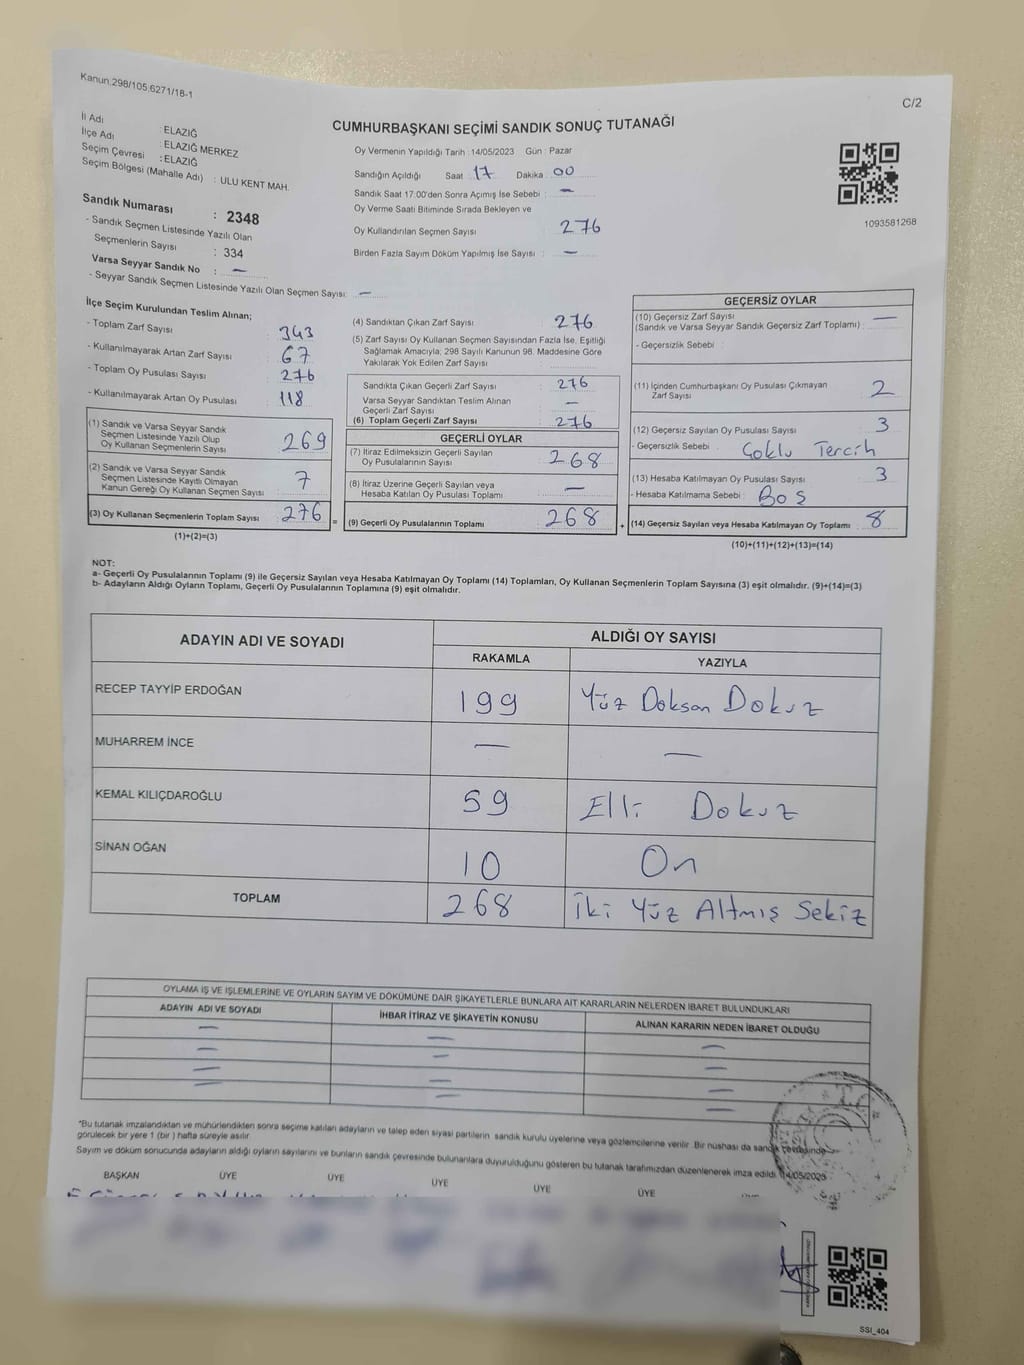 Kanun:298/105;6271/18-1
C/2
CUMHURBAŞKANI SEÇİMİ SANDIK SONUÇ TUTANAĞI
İl Adı : ELAZIĞ
İlçe Adı : ELAZIĞ MERKEZ
Seçim Çevresi : ELAZIĞ
Seçim Bölgesi (Mahalle Adı) : ULU KENT MAH.
Sandık Numarası : 2348
- Sandık Seçmen Listesinde Yazılı Olan
Seçmenlerin Sayısı : 334
Varsa Seyyar Sandık No : —
- Seyyar Sandık Seçmen Listesinde Yazılı Olan Seçmen Sayısı: —
Oy Vermenin Yapıldığı Tarih : 14/05/2023 Gün : Pazar
Sandığın Açıldığı Saat 17 Dakika 00
Sandık Saat 17:00'den Sonra Açımış İse Sebebi : —
Oy Verme Saati Bitiminde Sırada Bekleyen ve
Oy Kullandırılan Seçmen Sayısı 276
Birden Fazla Sayım Döküm Yapılmış İse Sayısı : —
1093581268
İlçe Seçim Kurulundan Teslim Alınan;
- Toplam Zarf Sayısı 343
- Kullanılmayarak Artan Zarf Sayısı 67
- Toplam Oy Pusulası Sayısı 276
- Kullanılmayarak Artan Oy Pusulası 118
(1) Sandık ve Varsa Seyyar Sandık
Seçmen Listesinde Yazılı Olup
Oy Kullanan Seçmenlerin Sayısı 269
(2) Sandık ve Varsa Seyyar Sandık
Seçmen Listesinde Kayıtlı Olmayan
Kanun Gereği Oy Kullanan Seçmen Sayısı 7
(3) Oy Kullanan Seçmenlerin Toplam Sayısı 276
(1)+(2)=(3)
(4) Sandıktan Çıkan Zarf Sayısı 276
(5) Zarf Sayısı Oy Kullanan Seçmen Sayısından Fazla İse, Eşitliği
Sağlamak Amacıyla; 298 Sayılı Kanunun 98. Maddesine Göre
Yakılarak Yok Edilen Zarf Sayısı
Sandıkta Çıkan Geçerli Zarf Sayısı : 276
Varsa Seyyar Sandıktan Teslim Alınan
Geçerli Zarf Sayısı —
(6) Toplam Geçerli Zarf Sayısı : 276
GEÇERLİ OYLAR
(7) İtiraz Edilmeksizin Geçerli Sayılan
Oy Pusulalarının Sayısı 268
(8) İtiraz Üzerine Geçerli Sayılan veya
Hesaba Katılan Oy Pusulası Toplamı —
=
(9) Geçerli Oy Pusulalarının Toplamı 268
+
GEÇERSİZ OYLAR
(10) Geçersiz Zarf Sayısı
(Sandık ve Varsa Seyyar Sandık Geçersiz Zarf Toplamı) : —
- Geçersizlik Sebebi :
(11) İçinden Cumhurbaşkanı Oy Pusulası Çıkmayan
Zarf Sayısı 2
(12) Geçersiz Sayılan Oy Pusulası Sayısı 3
- Geçersizlik Sebebi : Çoklu Tercih
(13) Hesaba Katılmayan Oy Pusulası Sayısı 3
- Hesaba Katılmama Sebebi : Boş
(14) Geçersiz Sayılan veya Hesaba Katılmayan Oy Toplamı 8
(10)+(11)+(12)+(13)=(14)
NOT:
a- Geçerli Oy Pusulalarının Toplamı (9) ile Geçersiz Sayılan veya Hesaba Katılmayan Oy Toplamı (14) Toplamları, Oy Kullanan Seçmenlerin Toplam Sayısına (3) eşit olmalıdır. (9)+(14)=(3)
b- Adayların Aldığı Oyların Toplamı, Geçerli Oy Pusulalarının Toplamına (9) eşit olmalıdır.
ADAYIN ADI VE SOYADI
ALDIĞI OY SAYISI
RAKAMLA YAZIYLA
RECEP TAYYİP ERDOĞAN 199 Yüz Doksan Dokuz
MUHARREM İNCE — —
KEMAL KILIÇDAROĞLU 59 Elli Dokuz
SİNAN OĞAN 10 On
TOPLAM 268 İki Yüz Altmış Sekiz
OYLAMA İŞ VE İŞLEMLERİNE VE OYLARIN SAYIM VE DÖKÜMÜNE DAİR ŞİKAYETLERLE BUNLARA AİT KARARLARIN NELERDEN İBARET BULUNDUKLARI
ADAYIN ADI VE SOYADI İHBAR İTİRAZ VE ŞİKAYETİN KONUSU ALINAN KARARIN NEDEN İBARET OLDUĞU
— — —
— — —
— — —
— — —
*Bu tutanak imzalandıktan ve mühürlendikten sonra seçime katılan adayların ve talep eden siyasi partilerin sandık kurulu üyelerine veya gözlemcilerine verilir. Bir nüshası da sandık çevresinde
görülecek bir yere 1 (bir) hafta süreyle asılır.
Sayım ve döküm sonucunda adayların aldığı oyların sayılarını ve bunların sandık çevresinde bulunanlara duyurulduğunu gösteren bu tutanak tarafımızdan düzenlenerek imza edildi. 14/05/2023
BAŞKAN ÜYE ÜYE ÜYE ÜYE ÜYE
T.C.
SSI_404